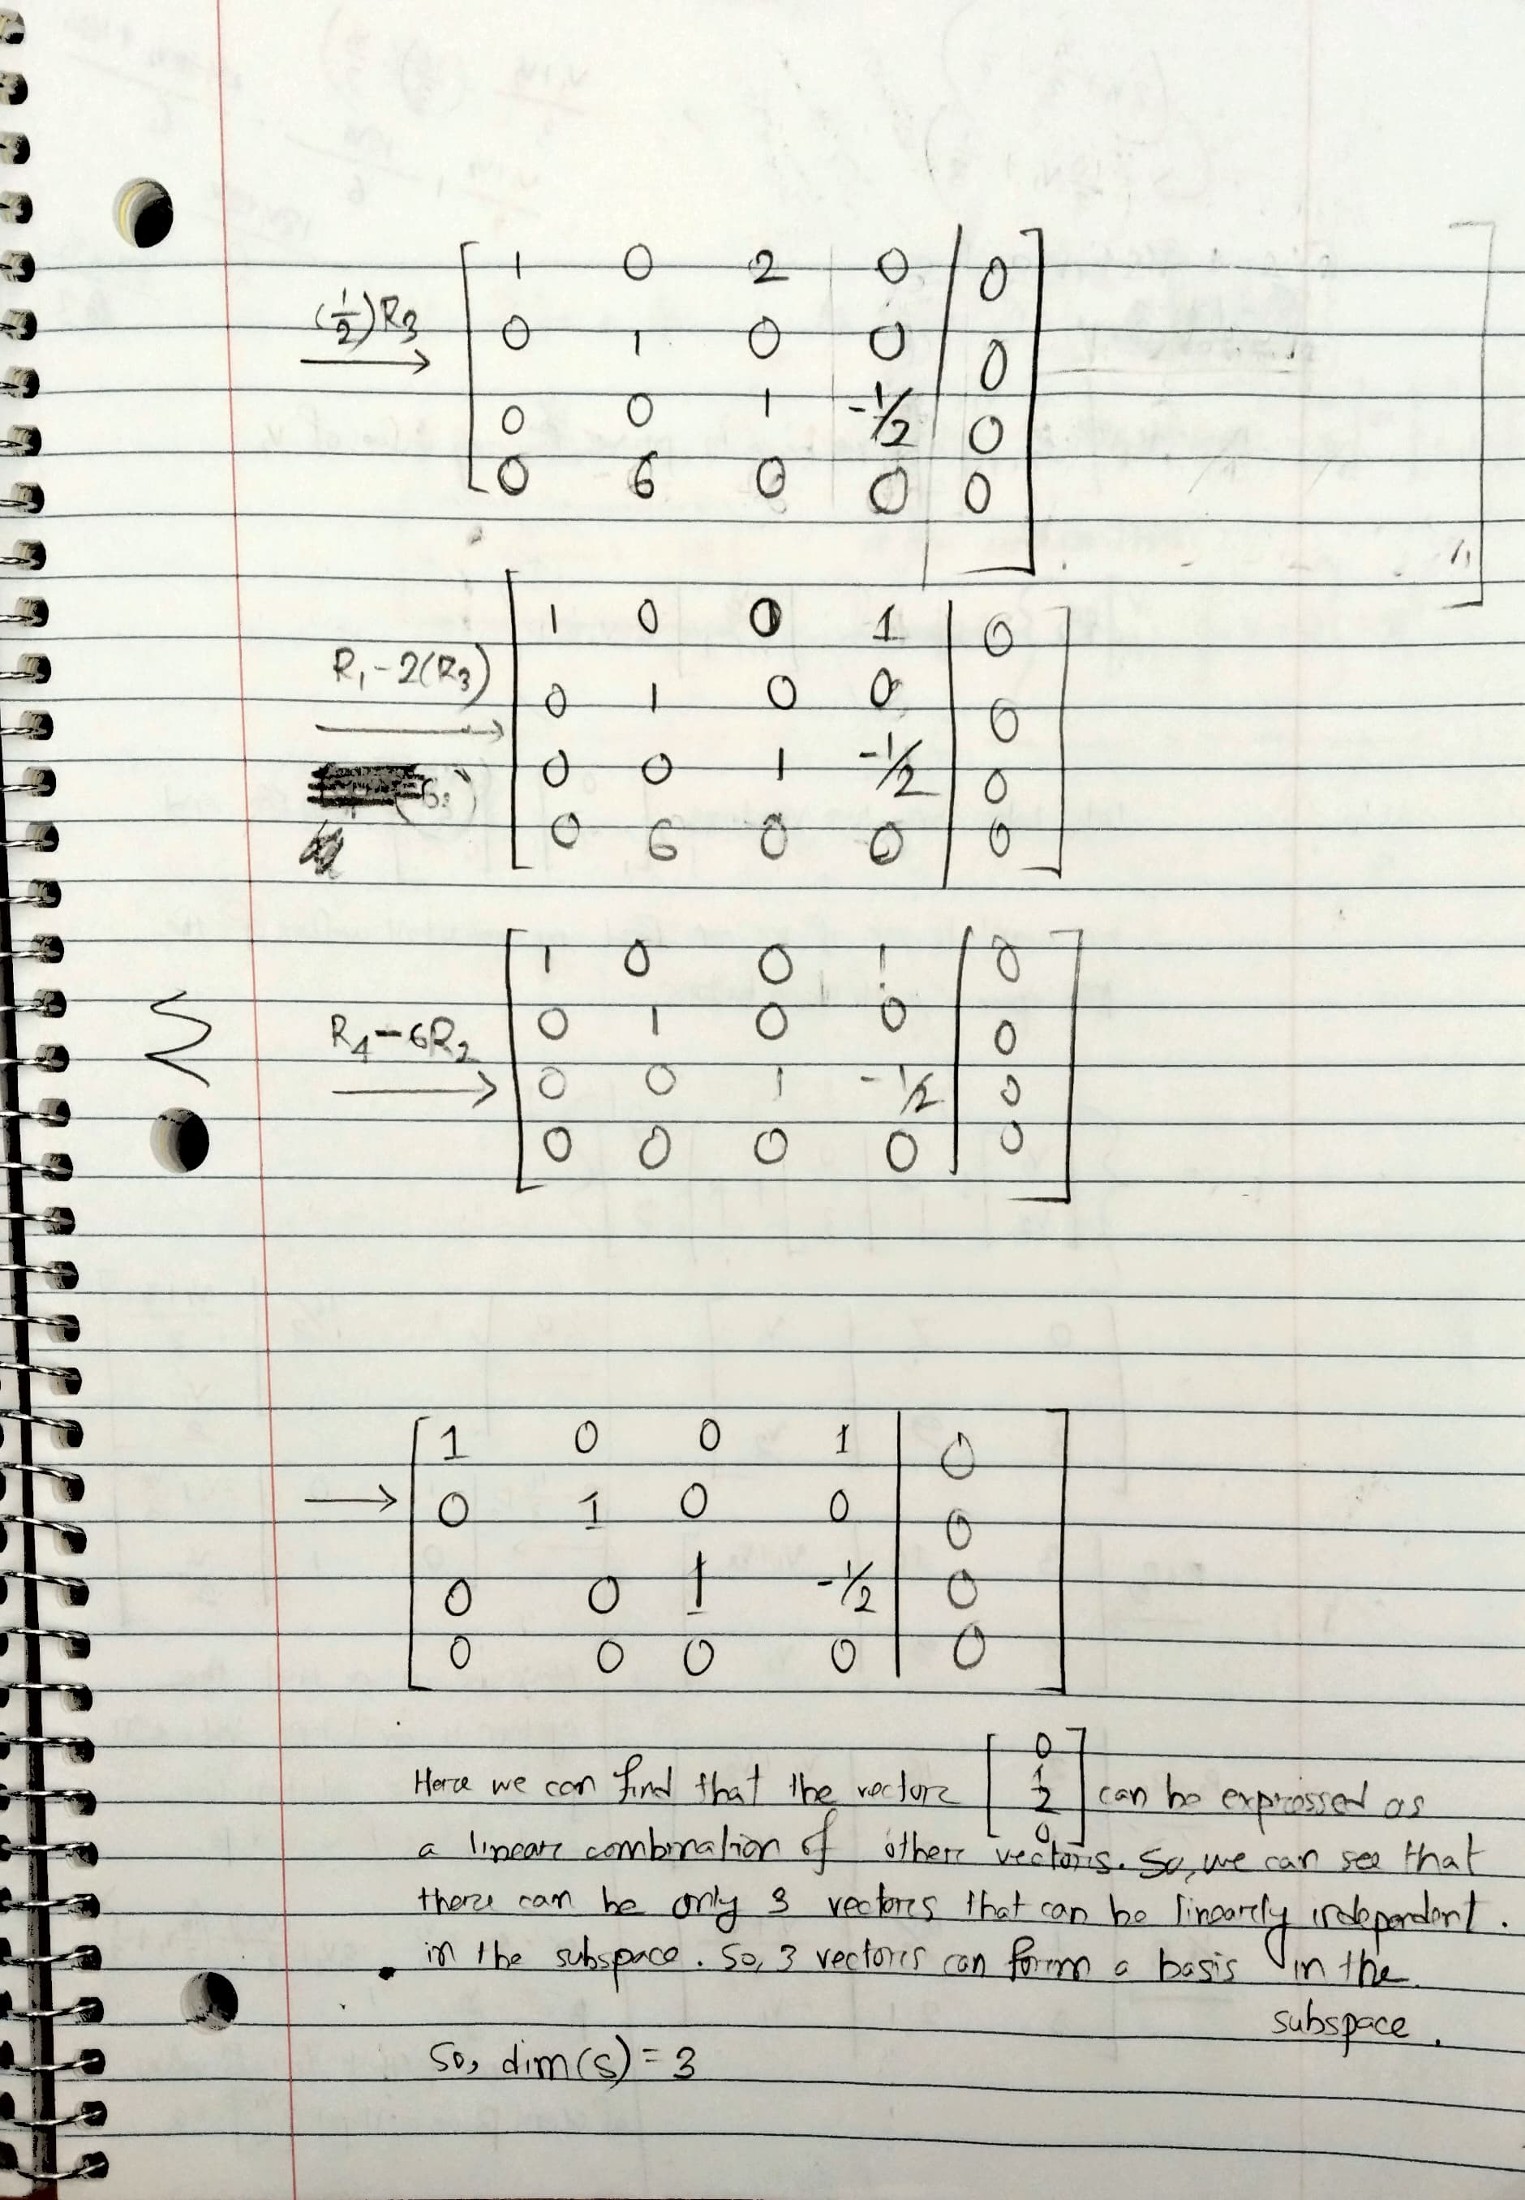 (1/2)R3
1 0 2 0 | 0
0 1 0 0 | 0
0 0 1 -1/2 | 0
0 6 0 0 | 0
R1-2(R3)
1 0 0 1 | 0
0 1 0 0 | 0
0 0 1 -1/2 | 0
0 6 0 0 | 0
R4-6R2
1 0 0 1 | 0
0 1 0 0 | 0
0 0 1 -1/2 | 0
0 0 0 0 | 0
→
1 0 0 1 | 0
0 1 0 0 | 0
0 0 1 -1/2 | 0
0 0 0 0 | 0
Here we can find that the vector [0 1 2 0] can be expressed as
a linear combination of other vectors. So, we can see that
there can be only 3 vectors that can be linearly independent.
in the subspace. So, 3 vectors can form a basis in the
subspace.
So, dim(s) = 3